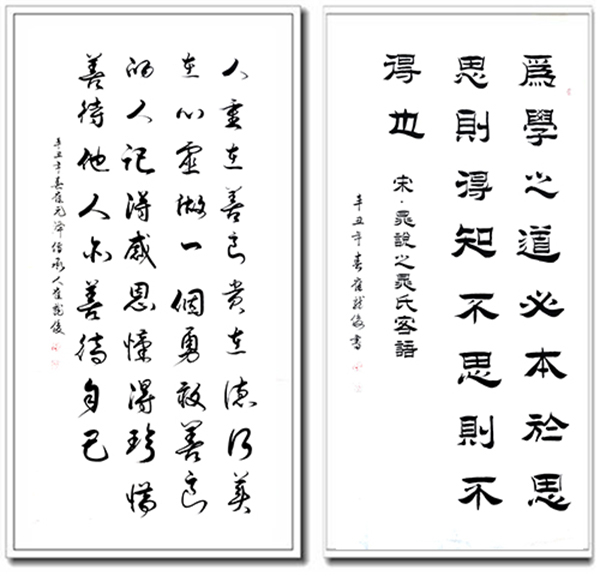 人重在善良贵在德行美
在心灵做一個勇敢善良
的人记得感恩懂得珍惜
善待他人亦善待自己
辛丑年春崔传承人崔龙俊
爲學之道必本於思
思則得知不思則不
得也
宋·晁說之晁氏客語
辛丑年春崔龙俊書